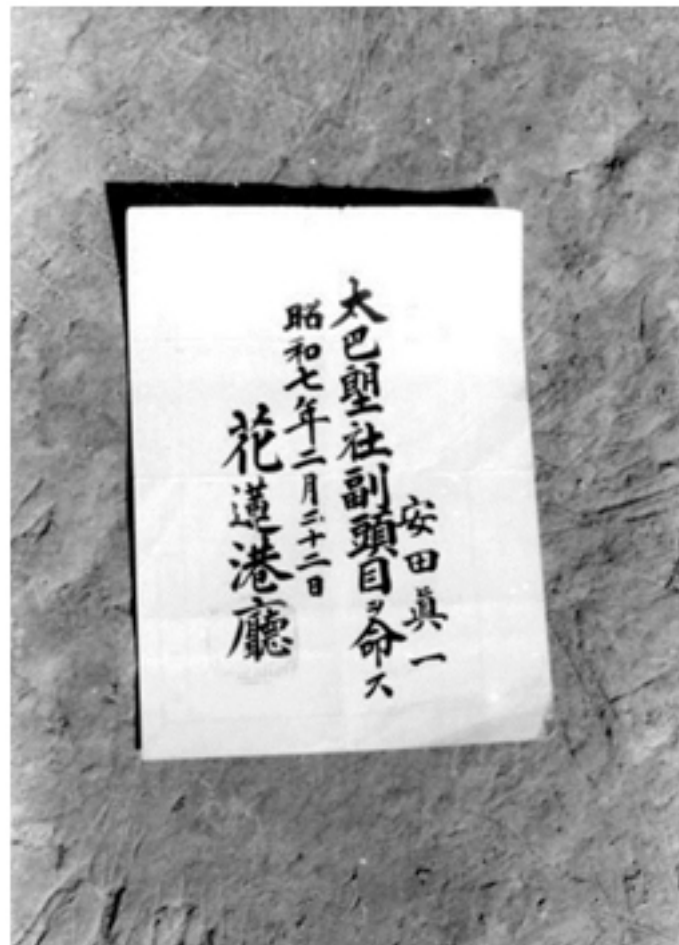 安田真一
太巴塱社副頭目ヲ命ス
昭和七年二月二十二日
花蓮港廳